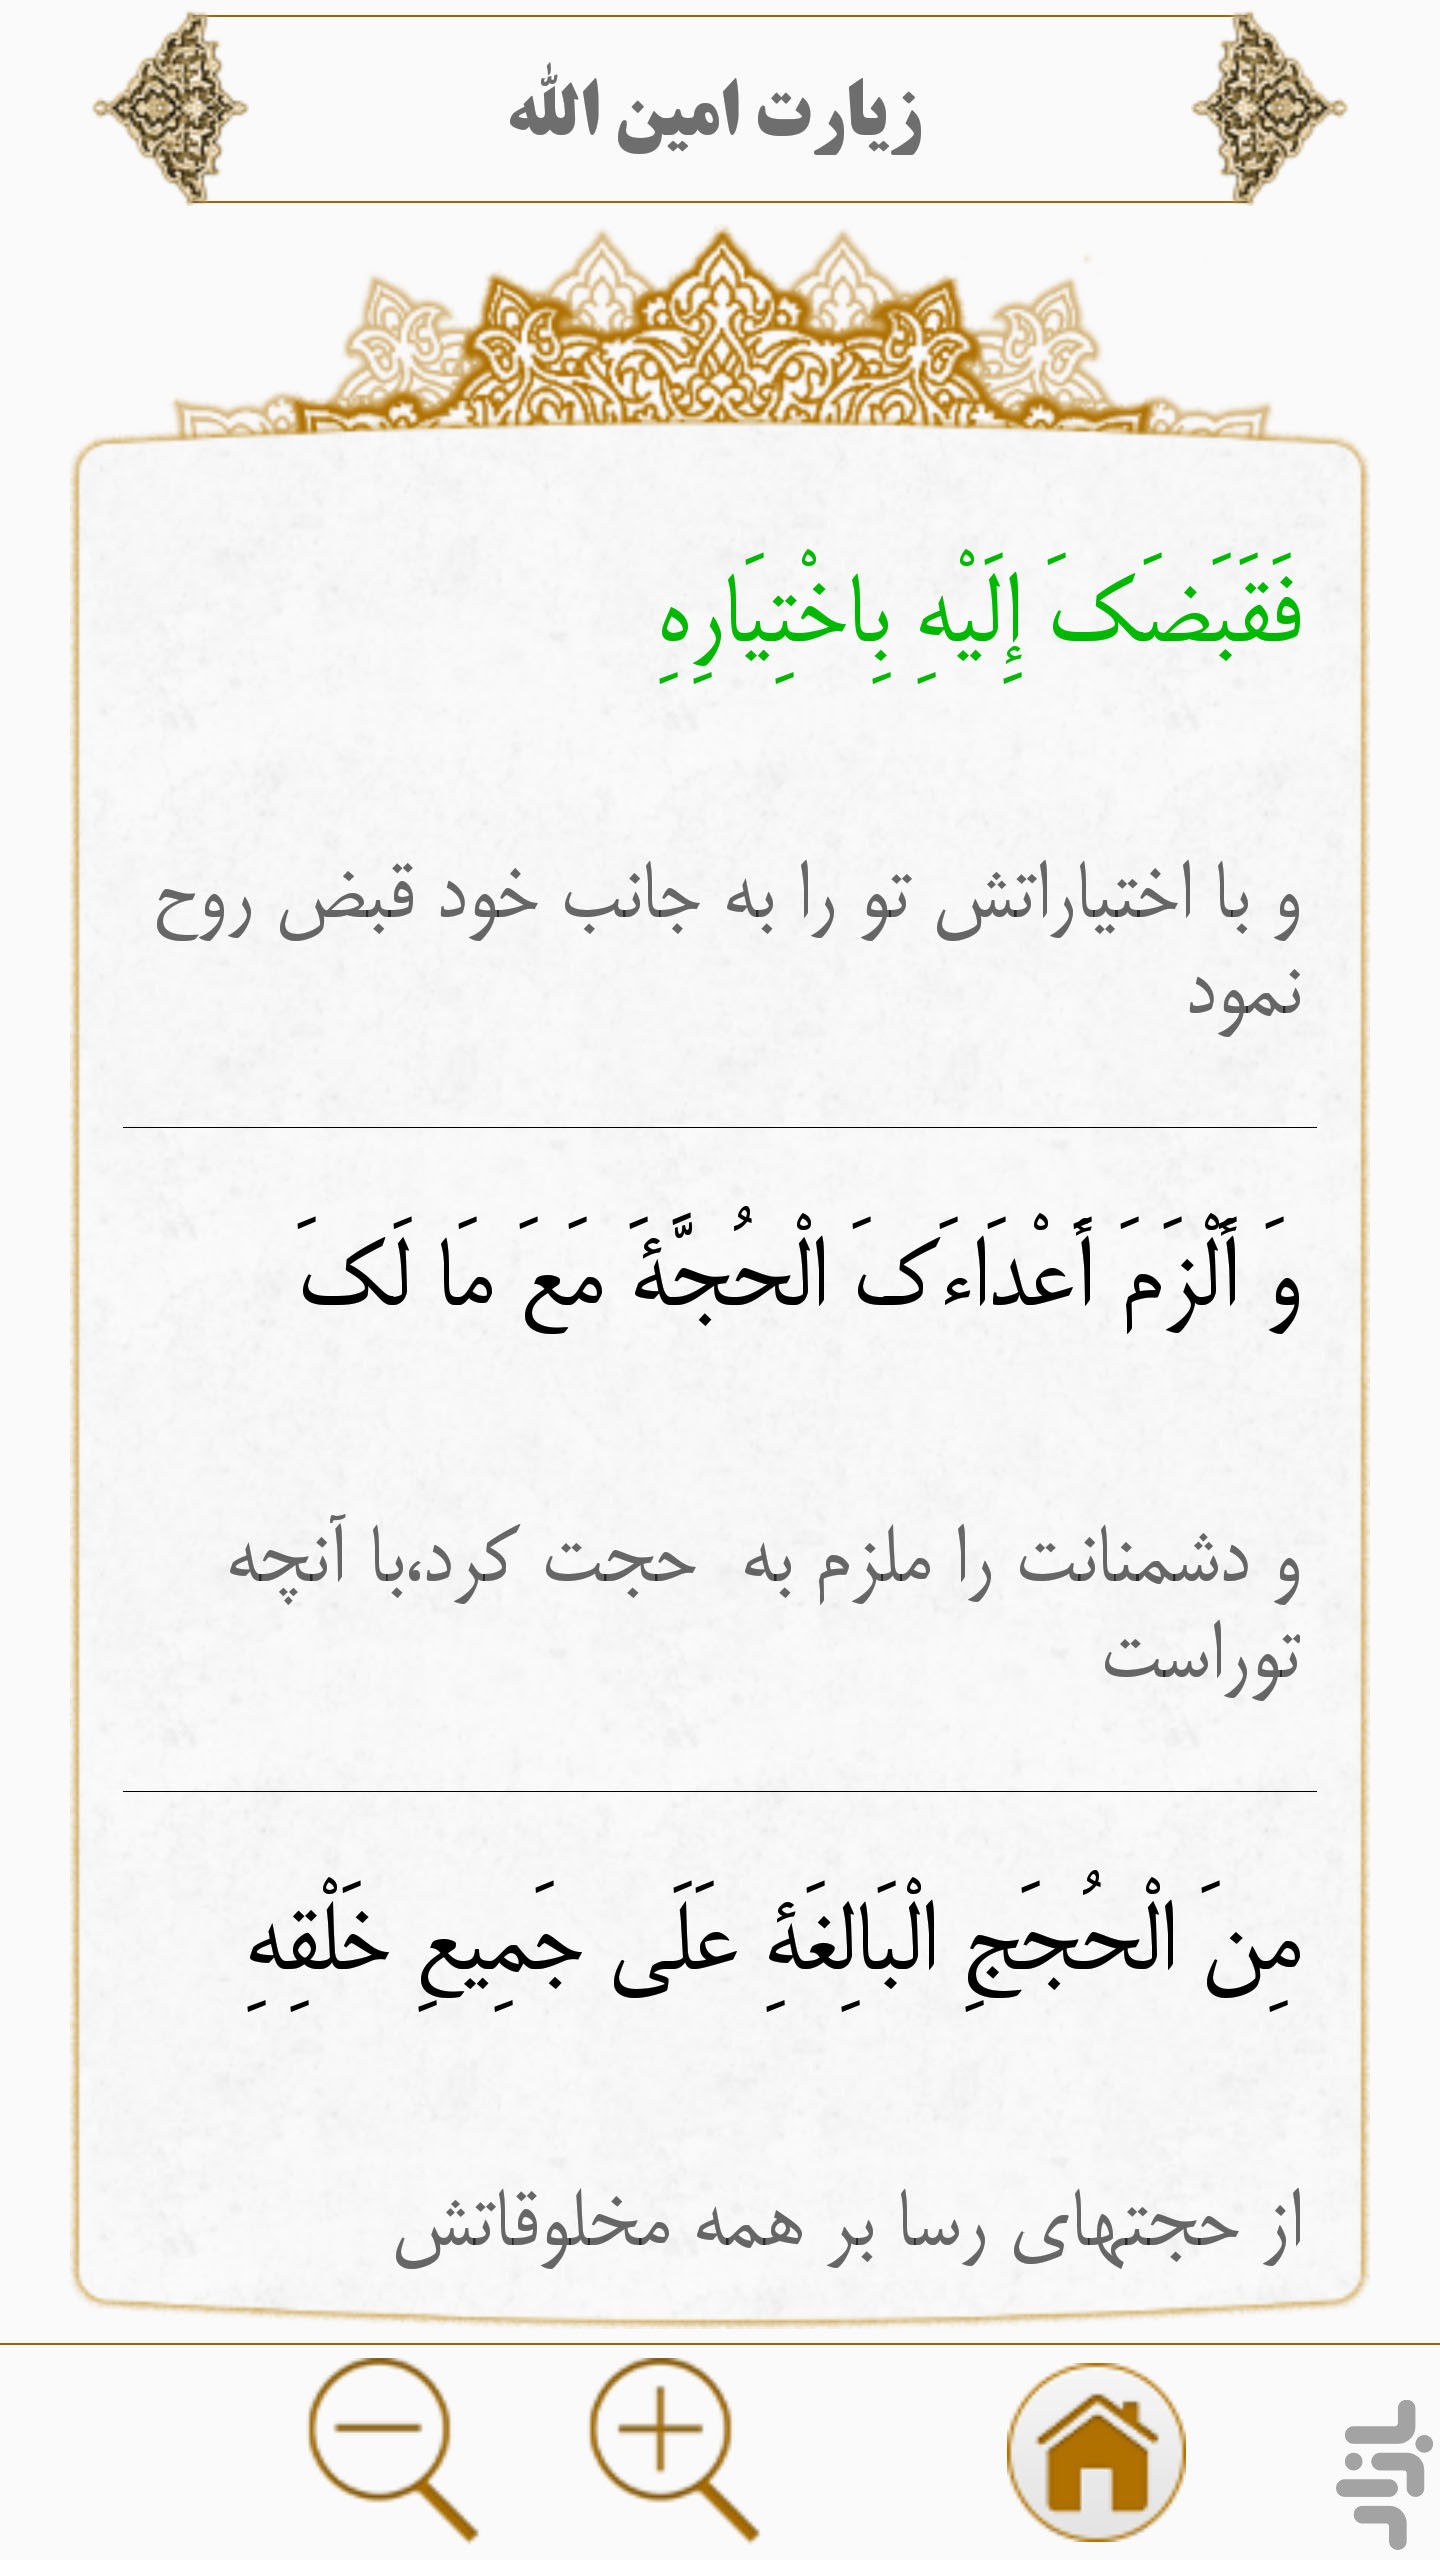 زیارت امین الله
فَقَبَضَکَ إِلَیْهِ بِاخْتِیَارِهِ
و با اختیاراتش تو را به جانب خود قبض روح
نمود
وَ أَلْزَمَ أَعْدَاءَکَ الْحُجَّهَٔ مَعَ مَا لَکَ
و دشمنانت را ملزم به حجت کرد،با آنچه
توراست
مِنَ الْحُجَجِ الْبَالِغَهِٔ عَلَی جَمِیعِ خَلْقِهِ
از حجتهای رسا بر همه مخلوقاتش
بازار